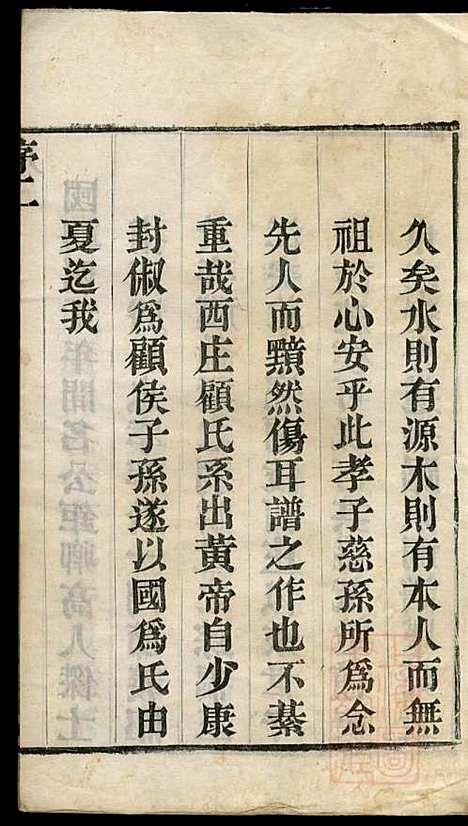 久矣水則有源木則有本人而無
祖於心安乎此孝子慈孫所為念
先人而顙然傷耳譜之作也不綦
重哉西庄顧氏系出黃帝自少康
封俶為顧侯子孫遂以國為氏由
夏迄我
序二